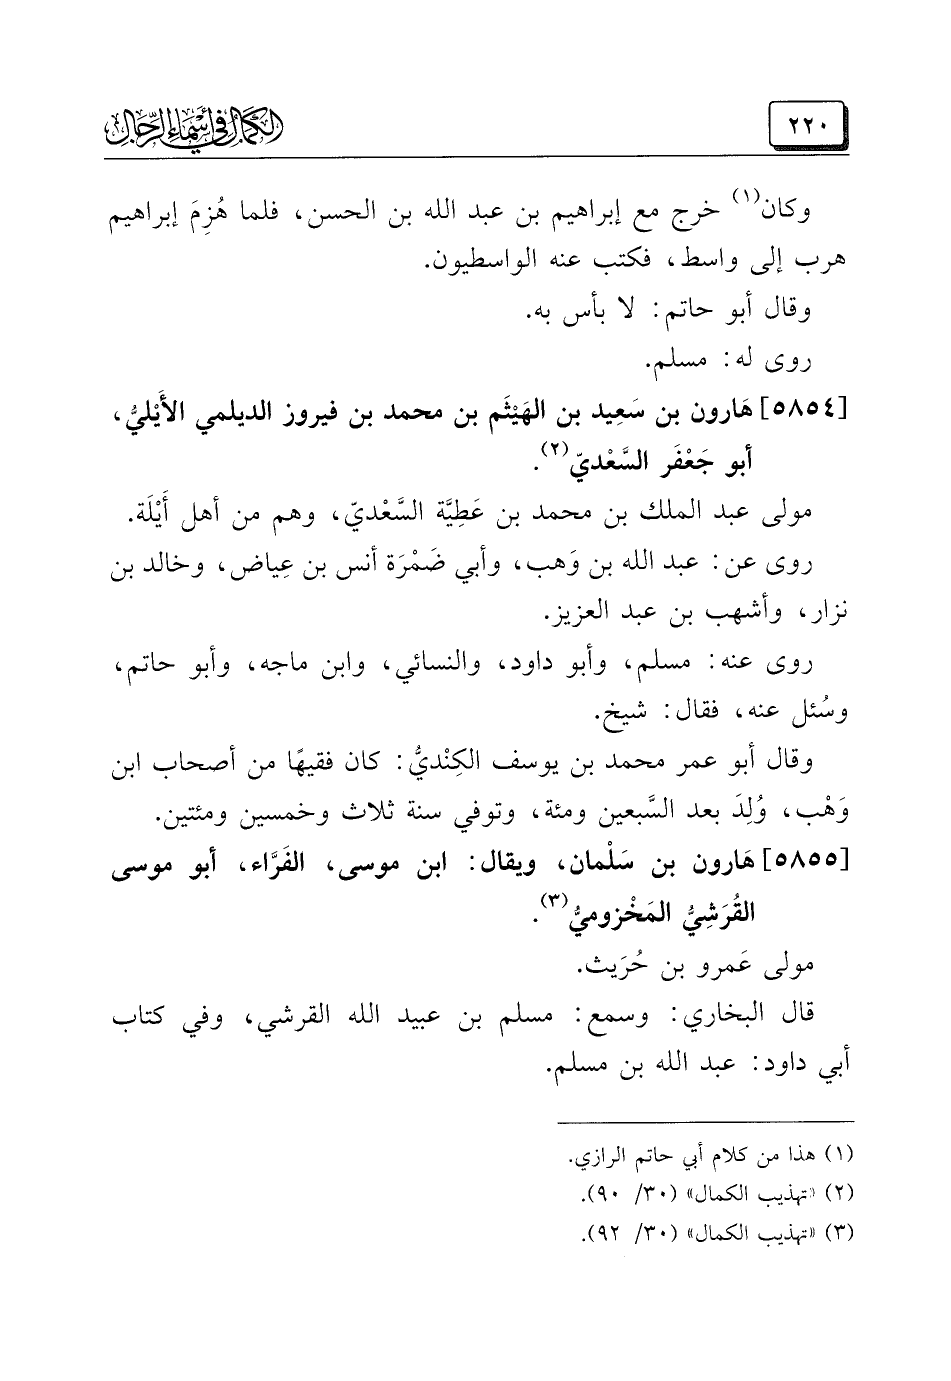 ٢٢٠
الكمال في أسماء الرجال
وكان(١) خرج مع إبراهيم بن عبد الله بن الحسن، فلما هُزِمَ إبراهيم
هرب إلى واسط، فكتب عنه الواسطيون.
وقال أبو حاتم: لا بأس به.
روى له: مسلم.
[٥٨٥٤] هَارون بن سَعِيد بن الهَيْثَم بن محمد بن فيروز الديلمي الأَيْليُّ،
أبو جَعْفَر السَّعْديّ(٢).
مولى عبد الملك بن محمد بن عَطِيَّة السَّعْديّ، وهم من أهل أَيْلَة.
روى عن: عبد الله بن وَهب، وأبي ضَمْرَة أنس بن عِياض، وخالد بن
نزار، وأشهب بن عبد العزيز.
روى عنه: مسلم، وأبو داود، والنسائي، وابن ماجه، وأبو حاتم،
وسُئل عنه، فقال: شيخ.
وقال أبو عمر محمد بن يوسف الكِنْديُّ: كان فقيهًا من أصحاب ابن
وَهْب، وُلِدَ بعد السَّبعين ومئة، وتوفي سنة ثلاث وخمسين ومئتين.
[٥٨٥٥] هَارون بن سَلْمان، ويقال: ابن موسى، الفَرَّاء، أبو موسى
القُرَشِيُّ المَخْزوميُّ(٣).
مولى عَمرو بن حُرَيث.
قال البخاري: وسمع: مسلم بن عبيد الله القرشي، وفي كتاب
أبي داود: عبد الله بن مسلم.
(١) هذا من كلام أبي حاتم الرازي.
(٢) «تهذيب الكمال» (٣٠/ ٩٠).
(٣) «تهذيب الكمال» (٣٠/ ٩٢).